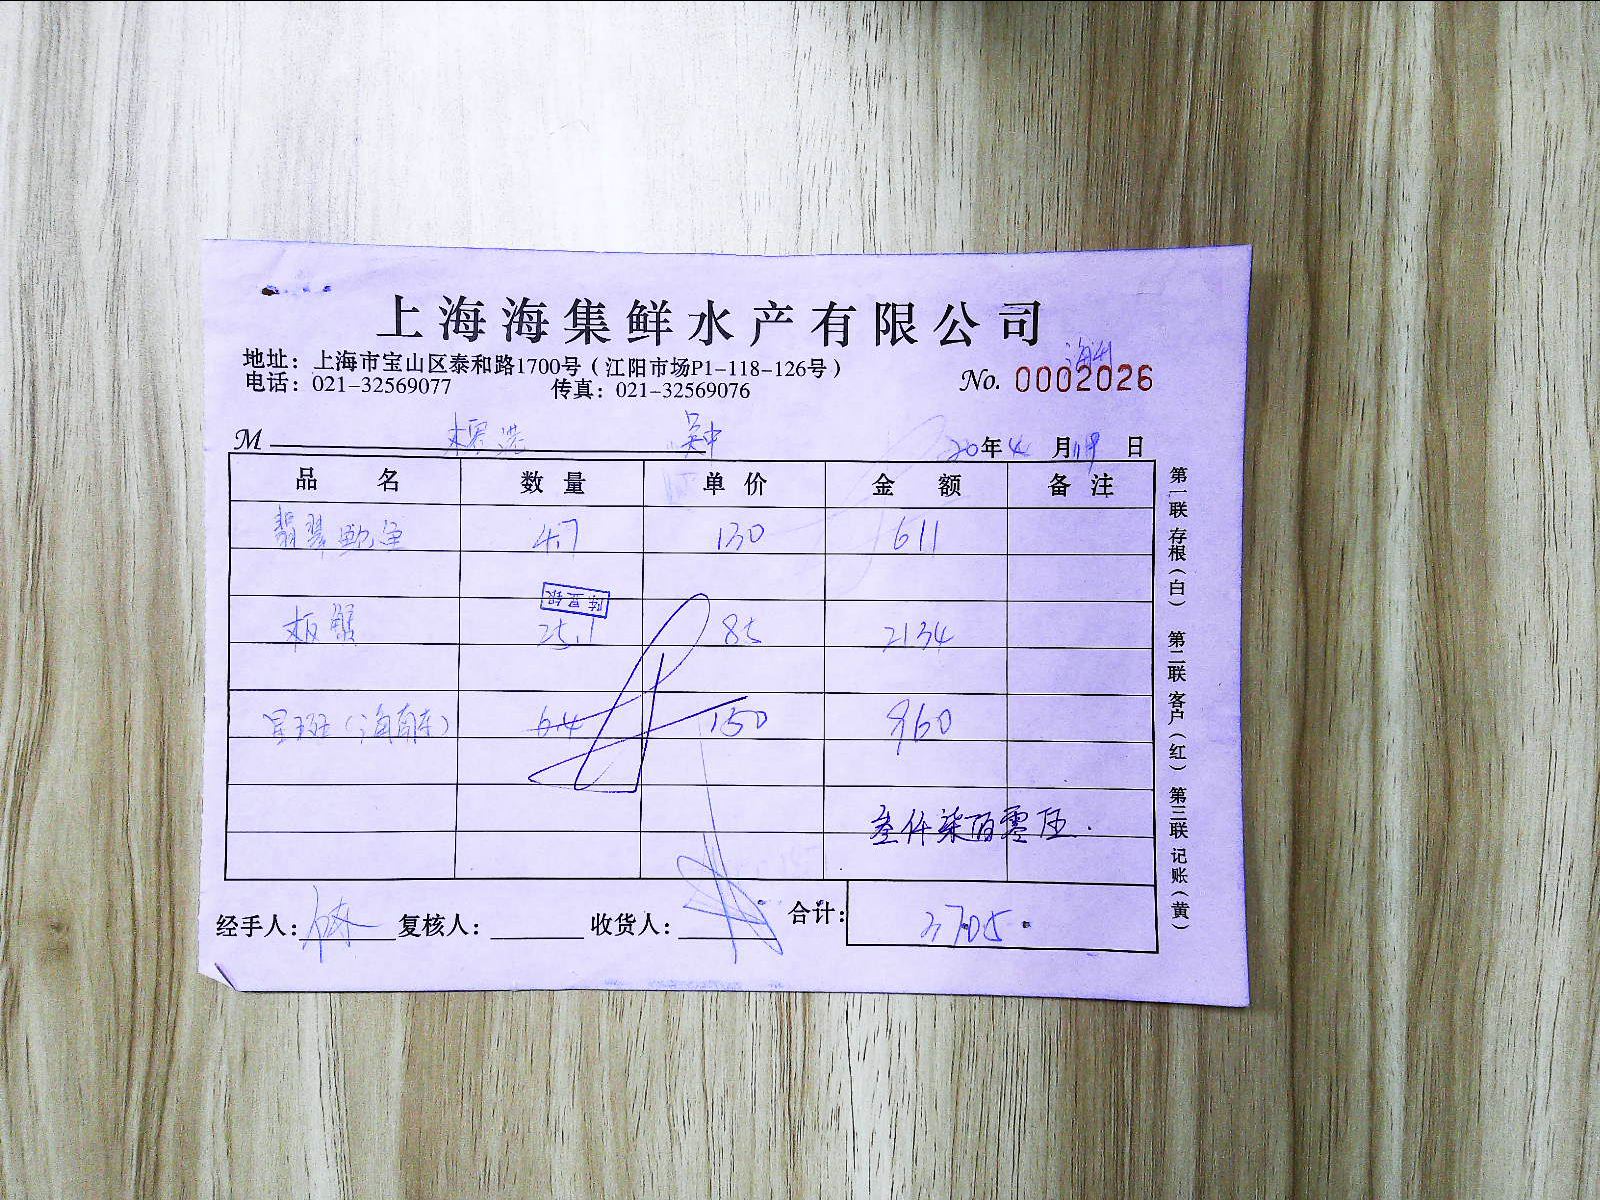 上海海集鲜水产有限公司
地址：上海市宝山区泰和路1700号（江阳市场P1-118-126号）
电话：021-32569077 传真：021-32569076
No. 0002026
M 吴中 20年4月19日
品名 数量 单价 金额 备注
翡翠鲍鱼 4.7 130 611
板蟹 25.1 85 2134
星斑（海南东） 6.4 150 960
叁仟柒佰零伍.
经手人： 复核人： 收货人： 合计： 3705.
第一联 存根（白） 第二联 客户（红） 第三联 记账（黄）